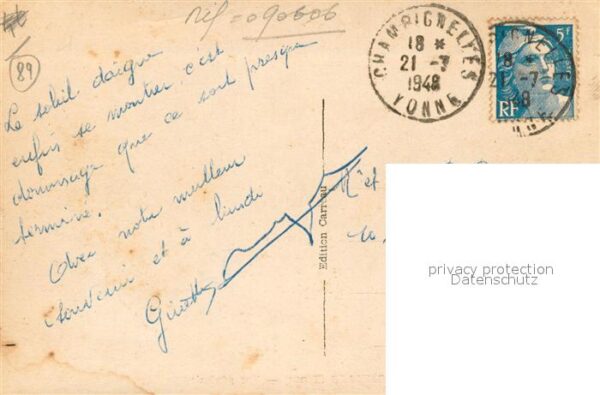 réf = 090606
89
Le soleil daigne
enfin se montrer c'est
dommage que ce soit presque
terminé.
Avec notre meilleur
souvenir et à lundi
CHAMPIGNELLES
18 *
21 -7
1948
YONNE
5F
8 *
21 -7
48
RF
Edition Carreau
M et
privacy protection
Datenschutz